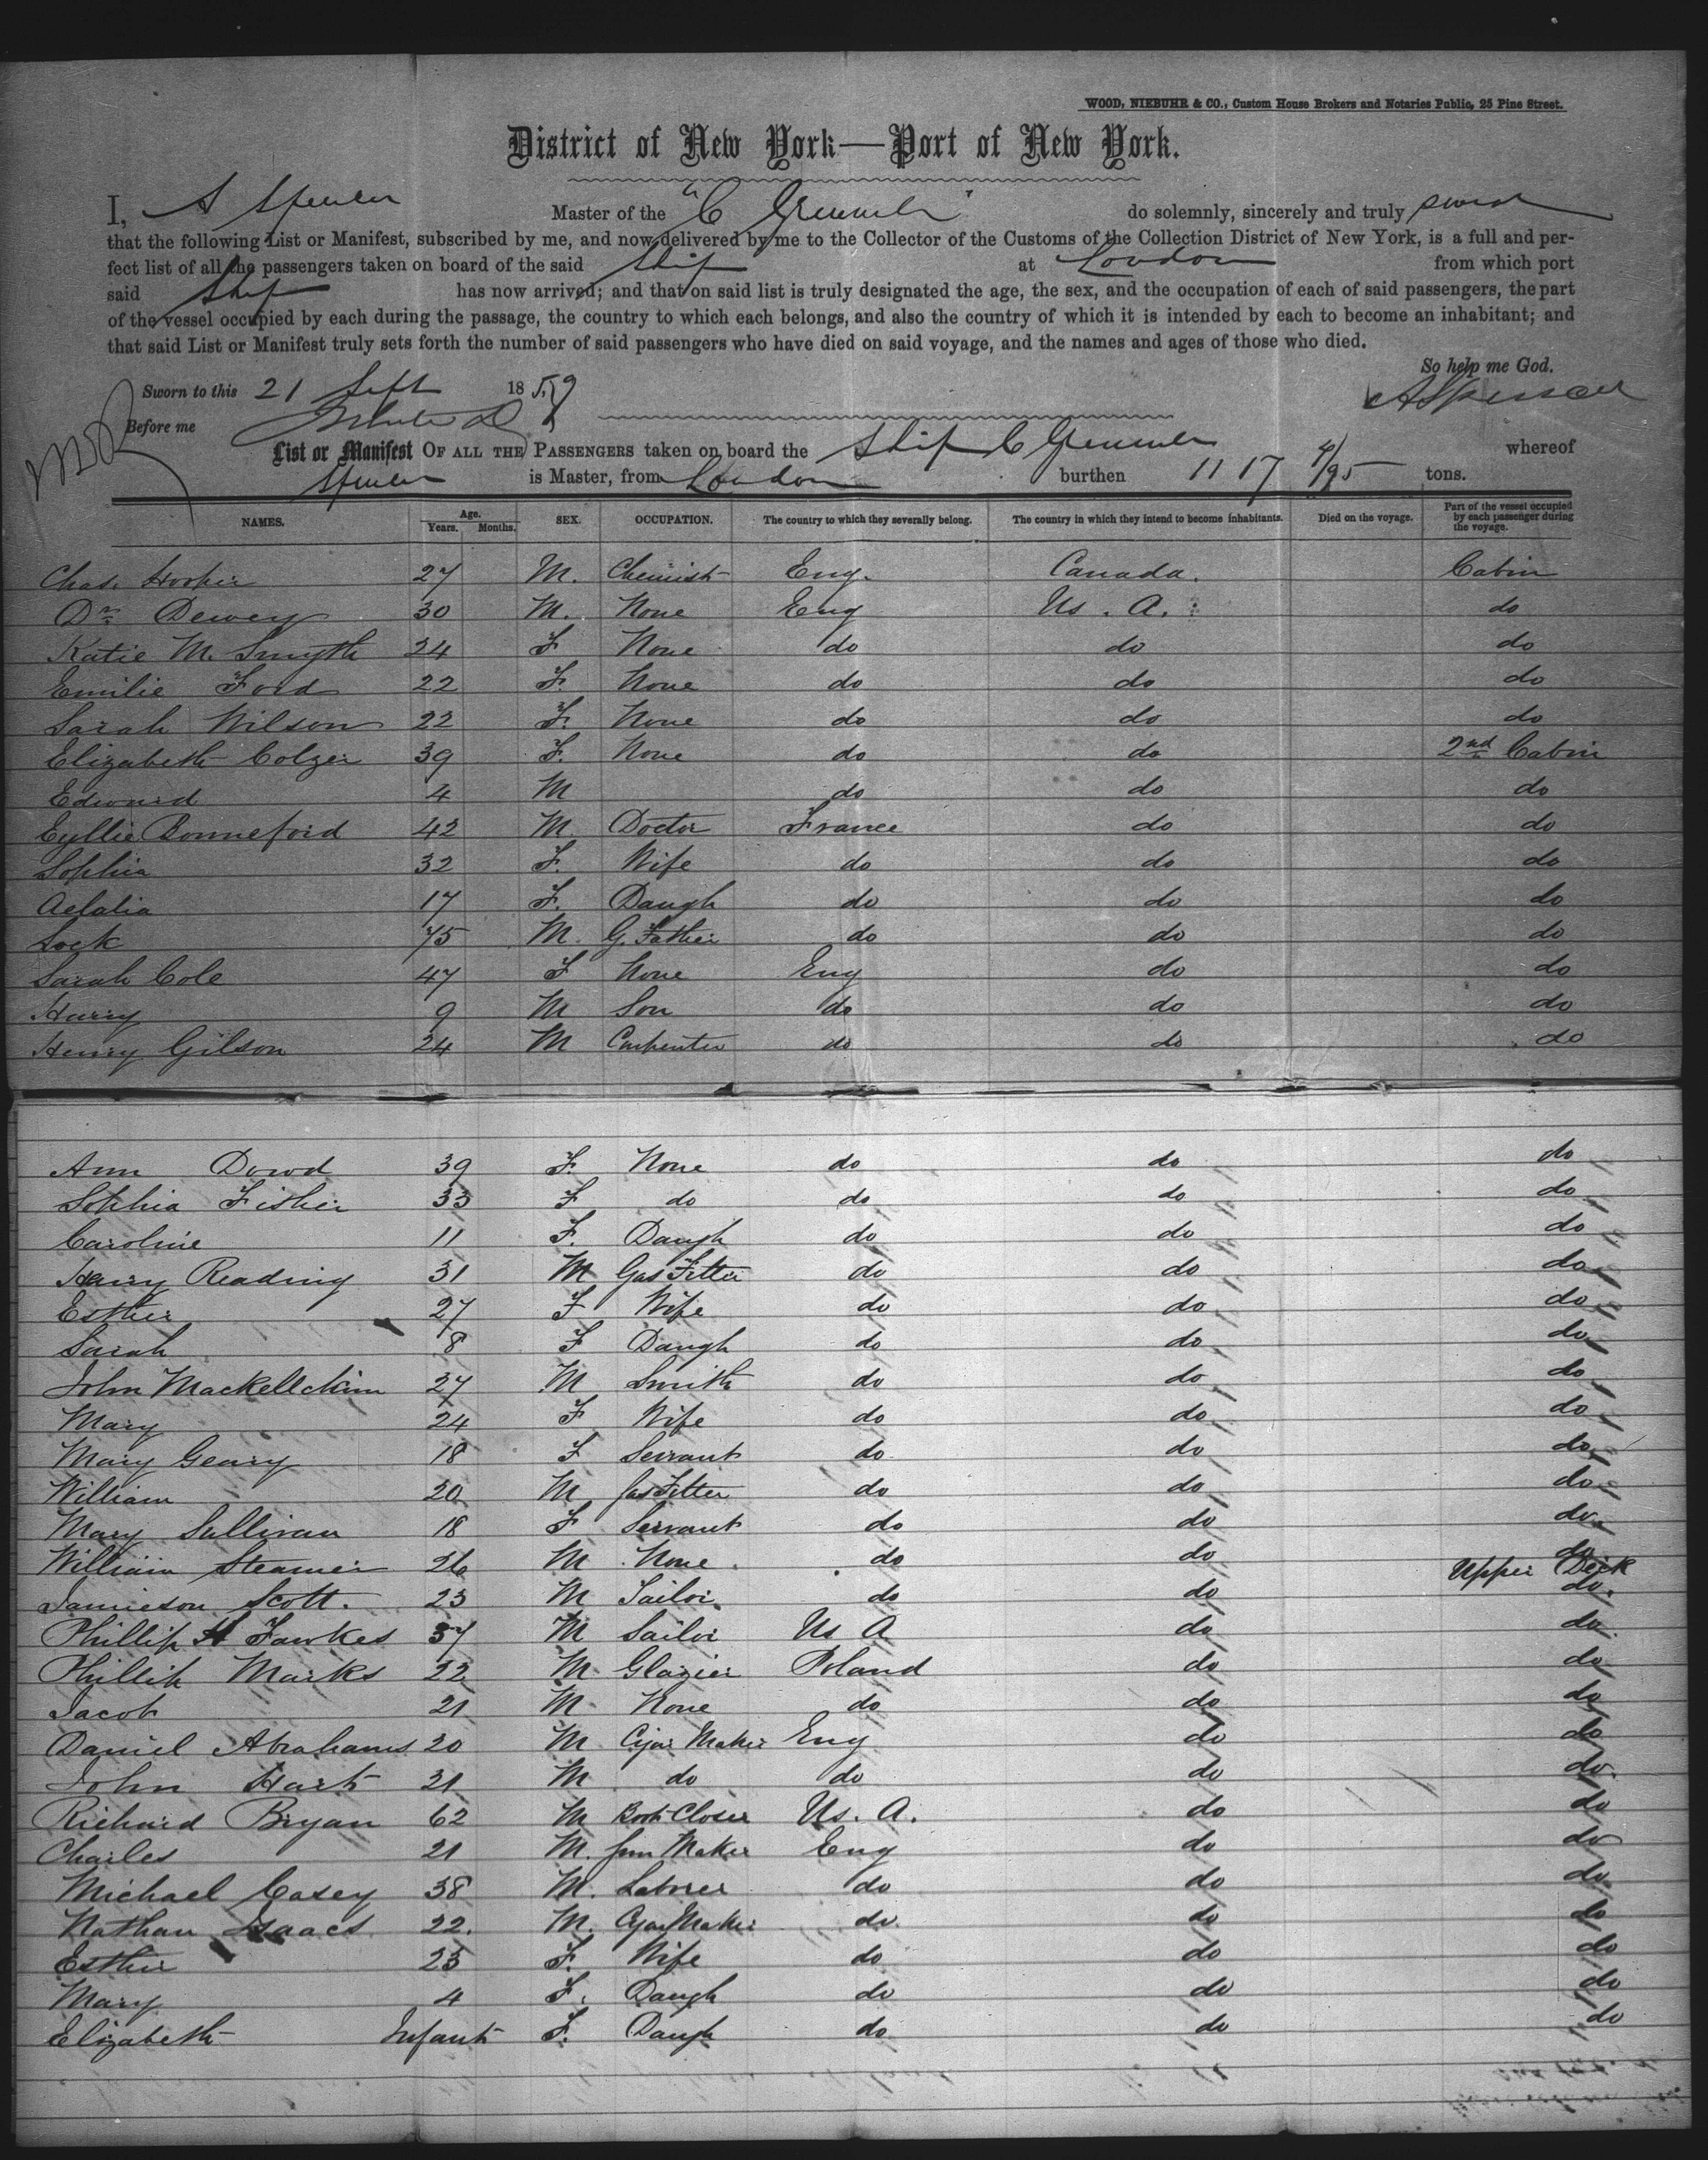 WOOD, NIEBUHR & CO., Custom House Brokers and Notaries Public, 25 Pine Street.
District of New York—Port of New York.
I, A Spencer Master of the "C Grinnell" do solemnly, sincerely and truly swear
that the following List or Manifest, subscribed by me, and now delivered by me to the Collector of the Customs of the Collection District of New York, is a full and per-
fect list of all the passengers taken on board of the said Ship at London from which port
said Ship has now arrived; and that on said list is truly designated the age, the sex, and the occupation of each of said passengers, the part
of the vessel occupied by each during the passage, the country to which each belongs, and also the country of which it is intended by each to become an inhabitant; and
that said List or Manifest truly sets forth the number of said passengers who have died on said voyage, and the names and ages of those who died.
So help me God.
Sworn to this 21 Sept 1859 A Spencer
Before me
List or Manifest OF ALL THE PASSENGERS taken on board the Ship C Grinnell whereof
Spencer is Master, from London burthen 1117 4/95 tons.
NAMES. Age. Years. Months. SEX. OCCUPATION. The country to which they severally belong. The country in which they intend to become inhabitants. Died on the voyage. Part of the vessel occupied by each passenger during the voyage.
Chas. Hooper 27 M. Chemist Eng. Canada. Cabin
Dr. Dewey 30 M. None Eng Us. A. do
Katie M. Smyth 24 F None do do do
Emilie Ford 22 F. None do do do
Sarah Wilson 22 F. None do do do
Elizabeth Colzer 39 F. None do do 2nd Cabin
Edward 4 M do do do
Eyllie Bonneford 42 M. Doctor France do do
Sophia 32 F. Wife do do do
Aelalia 17 F. Daugh do do do
Lock 75 M. G. Father do do do
Sarah Cole 47 F None Eng do do
Harry 9 M Son do do do
Henry Gilson 24 M Carpenter do do do
Ann Dowd 39 F. None do do do
Sophia Fisher 33 F do do do do
Caroline 11 F. Daugh do do do
Harry Reading 31 M Gas Fitter do do do
Esther 27 F Wife do do do
Sarah 8 F Daugh do do do
John Mackellchim 27 M Smith do do do
Mary 24 F Wife do do do
Mary Geary 18 F Servant do do do
William 20 M Gas Fitter do do do
Mary Sullivan 18 F Servant do do do
William Steamer 26 M None do do do
Upper Deck
Jamieson Scott. 23 M Tailor do do do.
Phillip H Fawkes 37 M Sailor Us A do do.
Phillip Marks 22 M. Glazier Poland do do
Jacob 21 M. None do do do
Daniel Abrahams 20 M Cigar Maker Eng do do
John Hart 21 M do do do do.
Richard Bryan 62 M Boot Closer Us. A. do do
Charles 21 M. Gun Maker Eng do do
Michael Casey 38 M. Laborer do do do
Nathan Isaacs 22. M. Cigar Maker do. do do
Esther 23 F. Wife do do do
Mary 4 F. Daugh do do do
Elizabeth Infant F. Daugh do do do